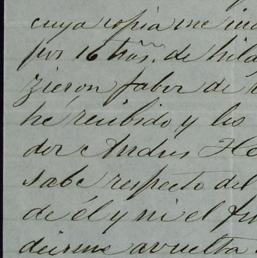 cuya copia me in
por 16 tns. de hila
zieron fabor de
he recibido y los
dor Andres He
sabe respecto del
de él y ni el fu
decirme a vuelta